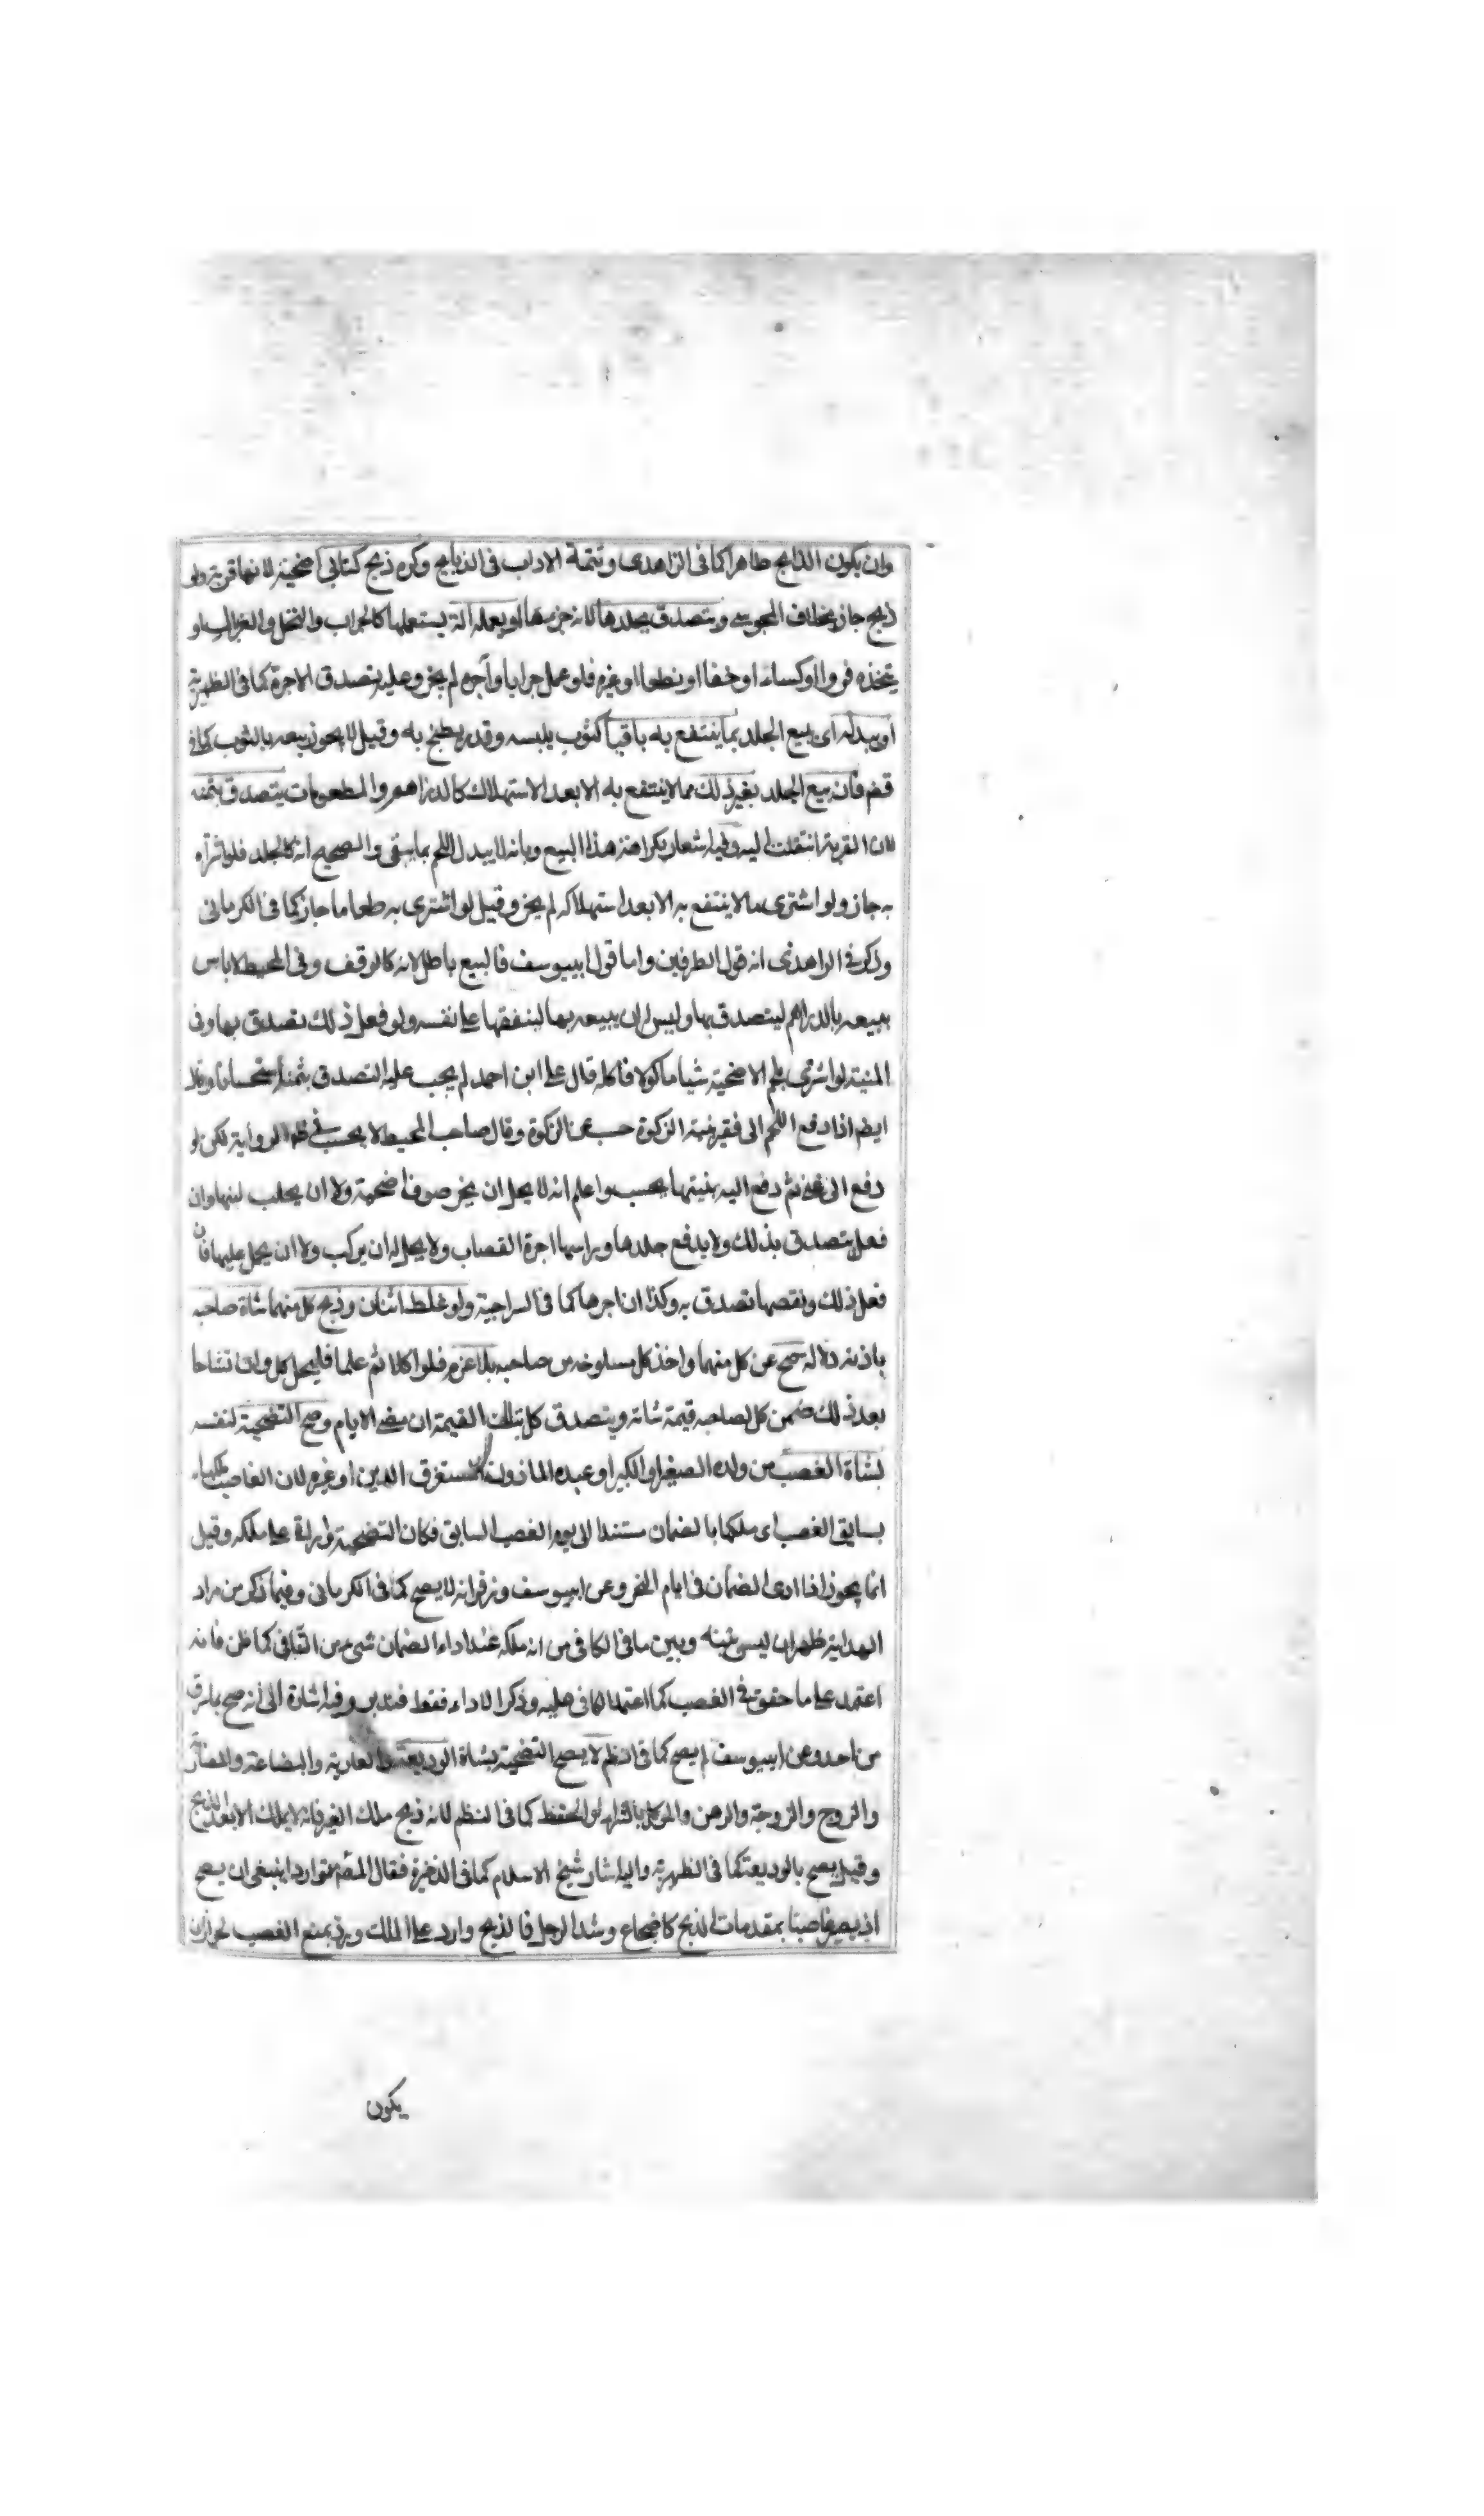 وان يكون الذابح طاهرا كما فى الزاهدى وتتمة الاداب فى الذبايح وكره ذبح كتابى اضحية لانها قربة ولو
ذبح جاز بخلاف المجوسى ويتصدق بجلدها لانه جزءها او يعمله آلة يستعملها كالجراب والنخل والغربال او
يتخذه فروا او كساء او خفا او نطعا او غيره فلو عمل جرابا وآجره لم يجز وعليه تصدق الاجرة كما فى الظهيرية
او يبدله اى يبيع الجلد بما ينتفع به باقيا كثوب يلبسه وقدر يطبخ به وقيل لا يجوز بيعه بالثوب كما فى
فان بيع الجلد بغير ذلك مما لا ينتفع به الا بعد الاستهلاك كالدراهم والمطعومات يتصدق بثمنه
لان القربة انتقلت اليه وفيه اشعار بكراهة هذا البيع وبانه لا يبدل اللحم بما يبقى والصحيح انه كالجلد فلو اشتراه
به جاز ولو اشترى ما لا ينتفع به الا بعد استهلاكه لم يجز وقيل لو اشترى به طعاما جاز كما فى الكرمانى
وذكر فى الزاهدى انه قول الطرفين واما قول ابييوسف فالبيع باطل لانه كالوقف وفى المحيط لا باس
ببيعه بالدراهم ليتصدق بها وليس له ان يبيعه بها لينفقها على نفسه ولو فعل ذلك تصدق بها وفى
المنية لو اشترى بلحم الاضحية شيا ماكولا فاكله قال على ابن احمد لم يجب عليه التصدق بثمنه استحسانا وقال
ايضم اذا دفع اللحم الى فقير بنية الزكوة حسب عن الزكوة وقال صاحب المحيط لا يحسب فى ظاهر الرواية لكن لو
دفع الى غنى ثم دفع اليه بنيتها يحسب واعلم انه لا يحل ان يجز صوف اضحية ولا ان يحلب لبنها وان
فعل يتصدق بذلك ولا يدفع جلدها وراسها اجرة القصاب ولا يحل له ان يركب ولا ان يحمل عليها فان
فعل ذلك ونقصها تصدق به وكذا ان اجرها كما فى السراجية ولو غلط اثنان وذبح كل منهما شاة صاحبه
باذنه دلالة صح عن كل منهما واخذ كل مسلوخه من صاحبه بلا غرم فلو اكلا ثم علما فليحل كل وان تشاحا
بعد ذلك ضمن كل لصاحبه قيمة شاته ويتصدق كل بتلك القيمة ان مضى الايام وصح التضحية لنفسه
بشاة الغصب من ولده الصغير او الكبير او عبده الماذون المستغرق الدين او غيره لان الغاصب يملكها
بسابق الغصب اى ملكها بالضمان مستندا الى يوم الغصب السابق فكان التضحية واردة على ملكه وقيل
انما يجوز اذا ادى الضمان فى ايام النحر وعن ابييوسف وزفر انه لا يصح كما فى الكرمانى وفيما ذكر من مراد
الهداية ظهر ان ليس بينه وبين ما فى الكافى من انه ملكه عند اداء الضمان شىء من التنافى كما ظن فانه
اعتمد على ما حقق فى الغصب كما اعتمد الكافى عليه وذكر الاداء فقط فتدبر وفيه اشارة الى انه صح بما سرق
من احد وعن ابييوسف لم يصح كما فى النظم لا يصح التضحية بشاة الوديعة والعارية والبضاعة والمضاربة
والزوج والزوجة والرهن والوكيل بالشراء او الحفظ كما فى النظم لانه ذبح ملك الغير فانه لا يملك الا بعد الذبح
وقيل يصح بالوديعة كما فى الظهيرية واليه اشار شيخ الاسلام كما فى الذخيرة فقال المصم توارد ينبغى ان يصح
اذ يصير غاصبا بمقدمات الذبح كاضجاع وشد الرجل فالذبح وارد على الملك ويرد بمنع الغصب لجواز ان
يكون